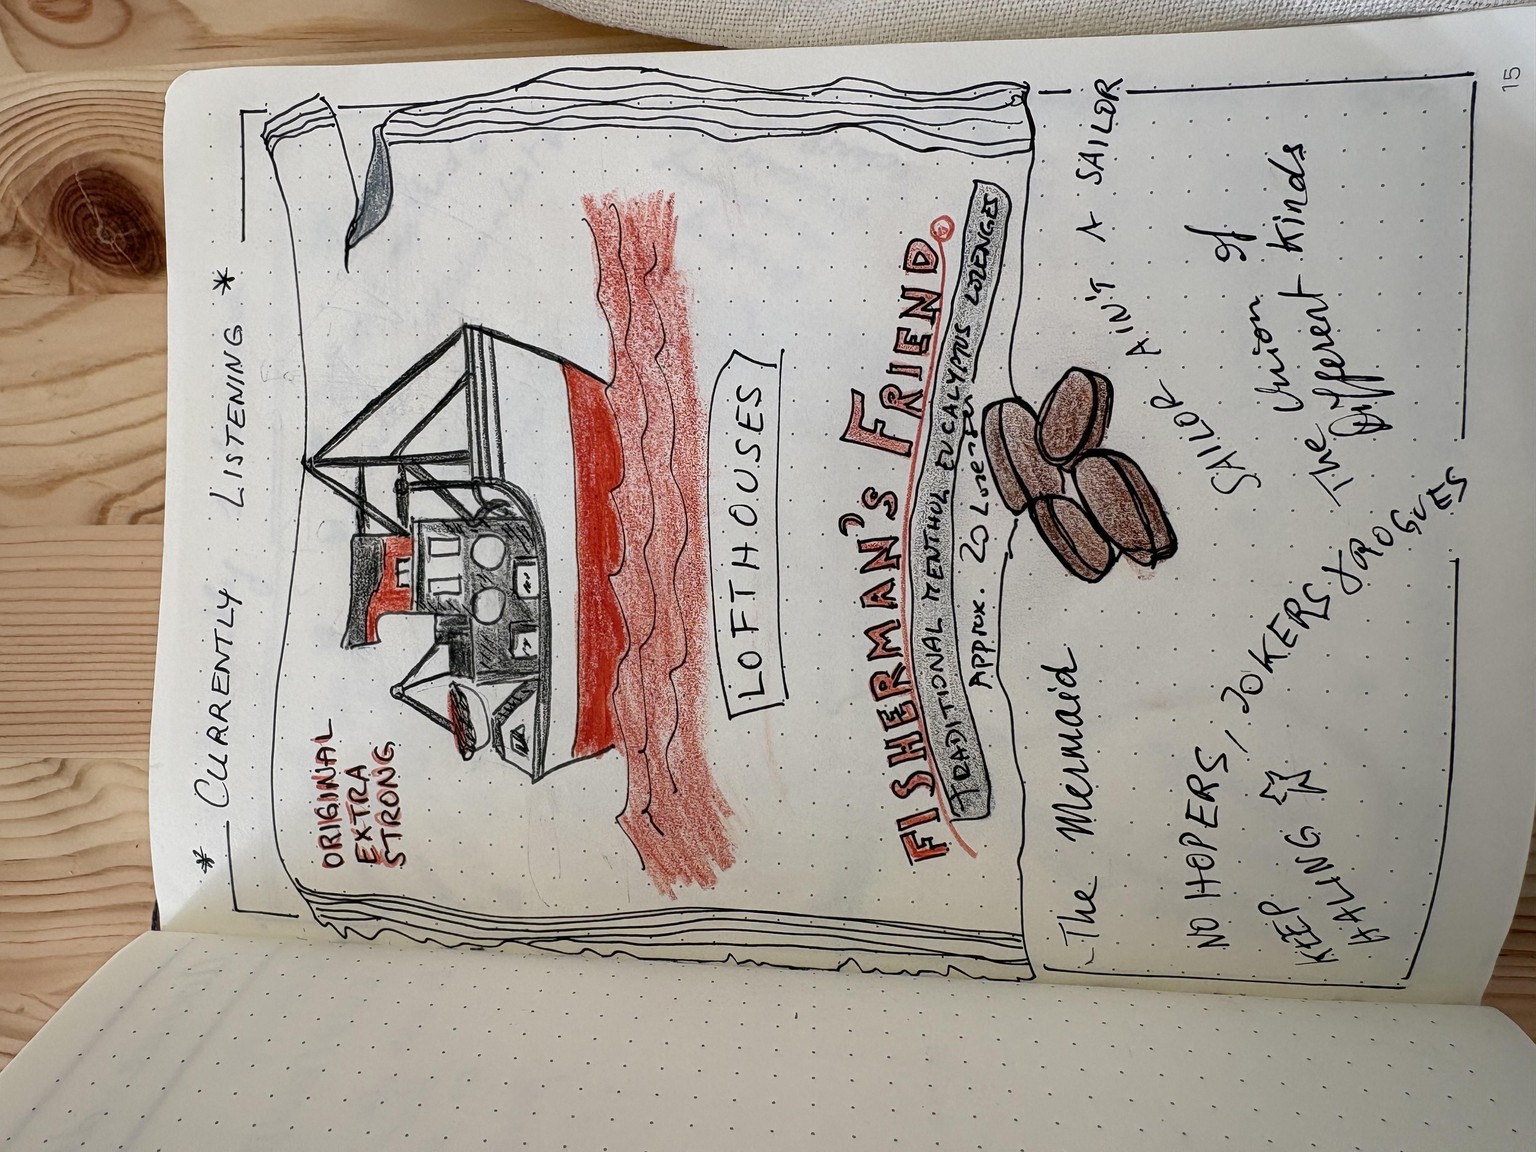 * CURRENTLY LISTENING *
ORIGINAL
EXTRA
STRONG
LOFTHOUSES
FISHERMAN'S FRIEND
TRADITIONAL MENTHOL EUCALYPTUS LOZENGES
APPROX. 20
- The Mermaid
SAILOR AIN'T A SAILOR
NO HOPERS, JOKERS & ROGUES
KEEP
HALING
The Union of
Different Kinds
15